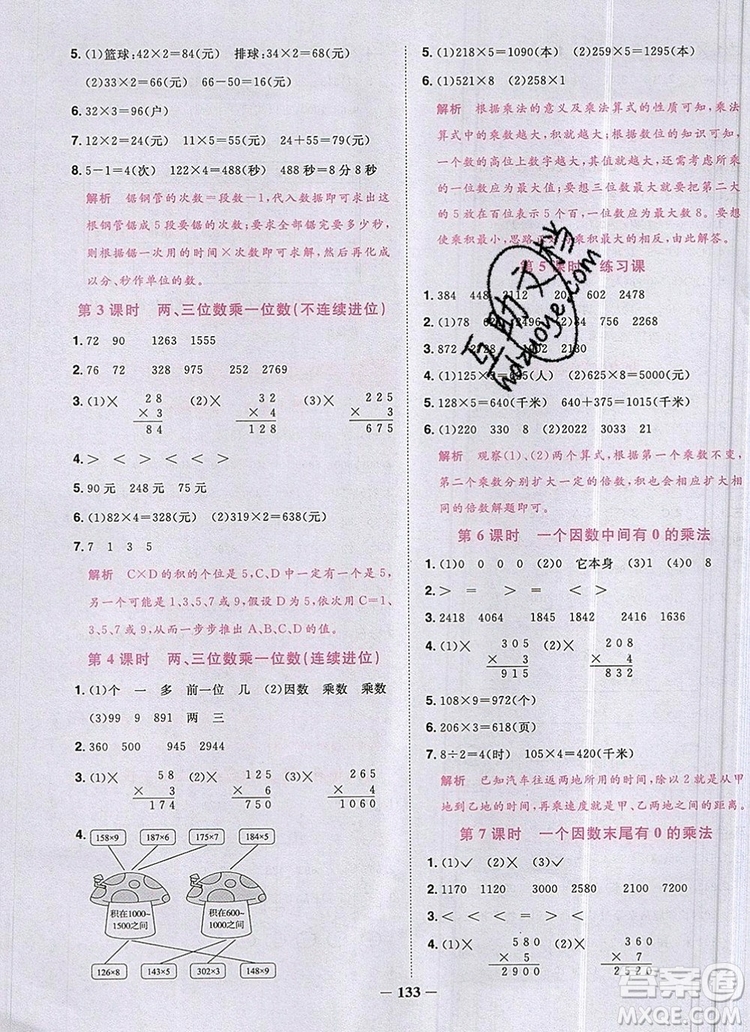 5. (1)篮球:42×2=84(元)　排球:34×2=68(元)
(2)33×2=66(元)　68-66=2(元)
6. 32×3=96(户)
7. 12×2=24(元)　11×5=55(元)　24+55=79(元)
8. 5-1=4(次)　122×4=488(秒)　488秒=8分8秒
解析　锯钢管的次数=段数-1,代入数据即可求出
钢管锯成5段要锯的次数;要求全部锯完需要多少秒,
则根据锯一次用的时间×次数即可解答,然后再化成
分、秒作单位的数。
第3课时　两、三位数乘一位数(不连续进位)
1. 72　90　1263　1555
2. 76　72　328　975　252　2769
3. (1)×　28　(2)×　32　(3)×　225
×3　×4　×3
84　128　675
4. ＞　＜　＞　＜　＞　＜
5. 90元　248　75元
6. (1)82×4=328(元)　(2)319×2=638(元)
7. 7　1　3　5
解析　C×D的积的个位是5,C、D中有一个是5,
另一个可能是1、3、5、7或9,根据竖式依次试用C=1、
3、5、7或9,从而一步步推出A、B、C、D。
第4课时　两、三位数乘一位数(连续进位)
1. (1)个　一　多　前一位　几　(2)因数　乘数　乘数
(3)99　9　891　两　三
2. 360　630　495　2944
3. (1)×　58　(2)×　126　(3)×　265
×3　×5　×4
174　630　1060
4.
158×9　187×6　175×7　184×5
积在1000~1500之间　积在600~1000之间
126×8　143×5　302×3　148×9
5. (1)218×5=1090(本)　(2)259×5=1295(本)
6. (1)521×8　(2)258×1
解析　根据乘法的意义及乘法算式的性质可知,乘法
算式中的乘数越大,积就越大;根据数位的知识可知,
一个数的高位上数字越大,其值就越大。因此要使乘
积最大,一位数应为最大值;要想三位数也较大,
的5放在百位表示5个百,一位数应为最大8。要想
使乘积最小,思路正好与乘积最大的相反,由此解答。
第5课时　练习课
1. 384　448　2112
2. (1)78
3. 872
4. (1)125×3=375(人)　(2)625×8=5000(米)
5. 128×5=640(千米)　640+375=1015(千米)
6. (1)2022　3033　(2)2022　3033　21
解析　观察(1)、(2)两个算式,根据第一个乘数不变,
第二个乘数分别扩大了一定的倍数,则积扩大相同的
倍数解题即可。
第6课时　一个因数中间有0的乘法
1. (1)0　0　0　0　(2)0　它本身　(3)0
2. ＞　＞　＜　＝　＞　＝
3. 2418　4097　1530　1842　2416　2636
4. (1)×　305　(2)×　208
×3　×4
915　832
5. 108×9=972(个)
6. 206×3=618(页)
7. 8÷2=4(时)　105×4=420(千米)
解析　已知汽车往返两地所用的时间,除以2就是从甲
地到乙地的时间,再乘速度就是甲、乙两地之间的距离。
第7课时　一个因数末尾有0的乘法
1. (1)✓　(2)×　(3)✓
3. ＜　＜　＝　＞　＞　＜
4. (1)×　580　(2)×　360
×5　×7
2900　2520
133
互助文档
hdzuoye.com
答案圈
MXQE.COM